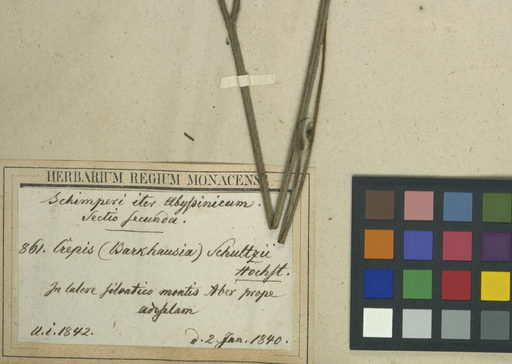 HERBARIUM REGIUM MONACENSE
Schimperi iter Abyssinicum.
Sectio secunda.
861. Crepis (Barkhausia) Schultzii
Hochst.
In latere silvatico montis Aber prope
Adeselam
U. i. 1842.
d. 2. Jan. 1840.